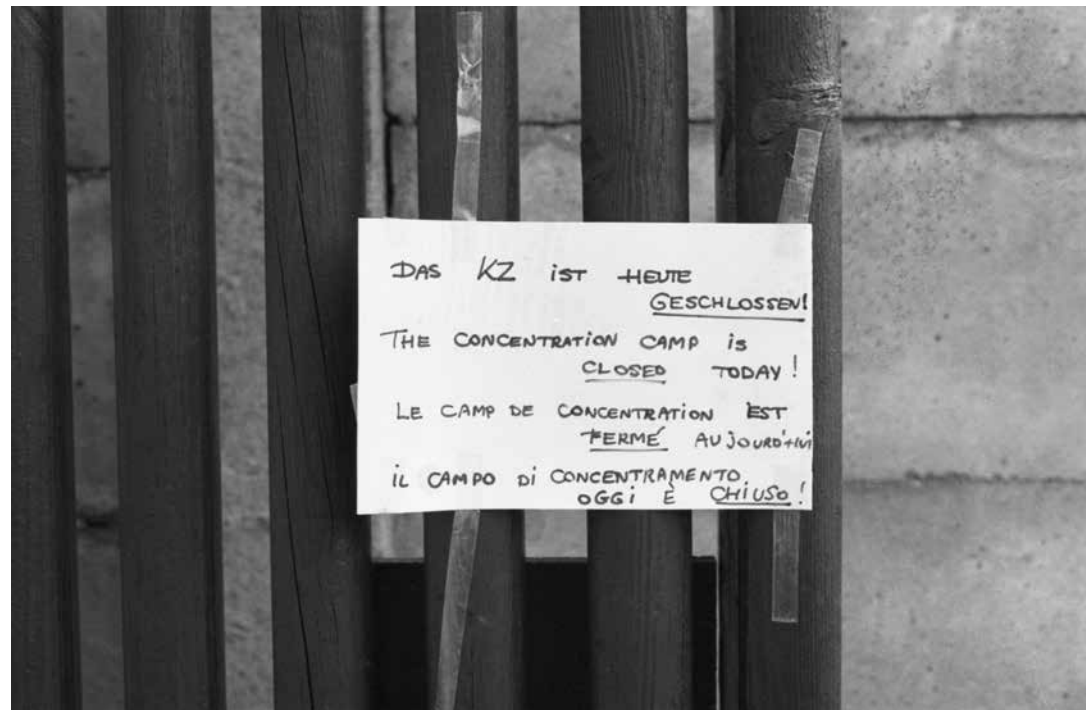 DAS KZ iST HEUTE
GESCHLOSSEN!
THE CONCENTRATiON CAMP is
CLOSED TODAY!
LE CAMP DE CONCENTRATION EST
FERMÉ AUjOURD'HUi
iL CAMPO Di CONCENTRAMENTO
OGGi E CHiUSO!